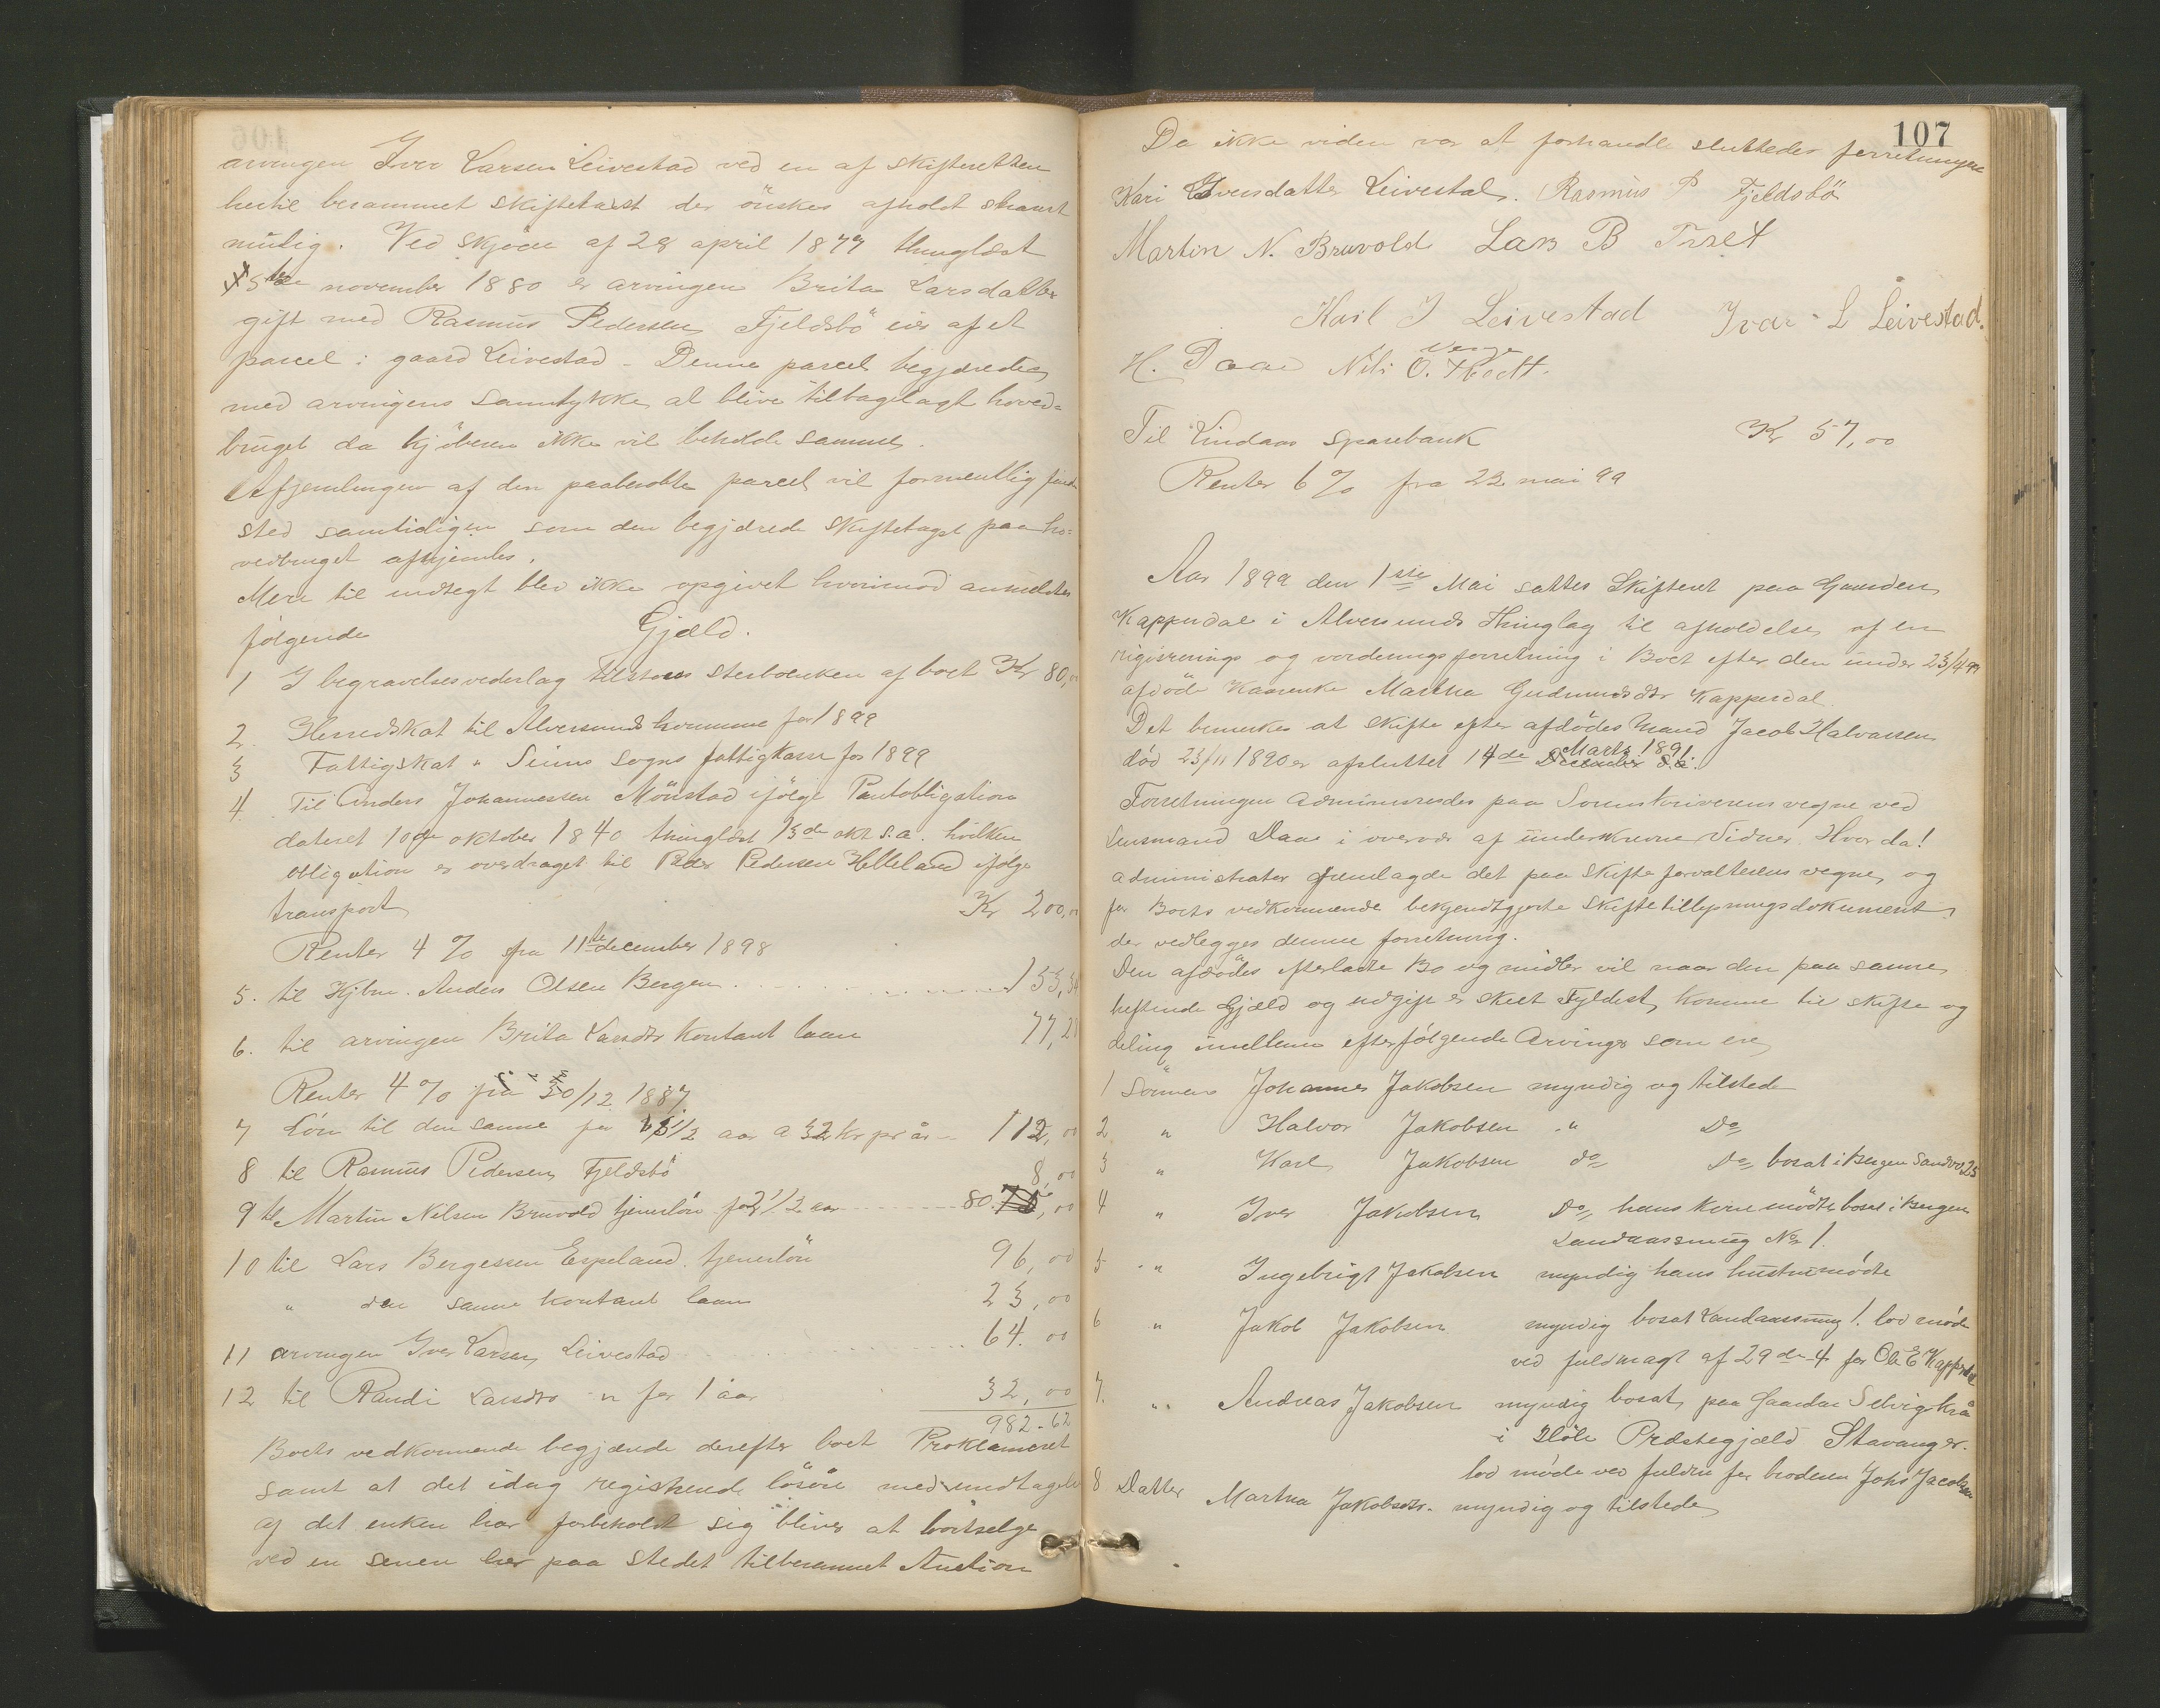 arvingen Iver Larsen Leivestad ved en af skifteretten
hertil berammet skiftetaxt der önskes afholdt snarest
mulig. Ved skjöde af 28 april 1877 thinglæst
5te november 1880 er arvingen Brita Larsdatter
gift med Rasmus Pedersen Fjeldsbö eier af et
parcel i gaard Leivestad - Denne parcel begjæredes
med arvingens samtykke at blive tilbagelagt hoved=
bruget da kjöberen ikke vil beholde samme.
Afhjemlingen af den paaberobte parcel vil formentlig finde
sted samtidigen som den begjærede skiftetagst paa ho=
vedbruget afhjemles.
Mere til indtegt blev ikke opgivet hvorimod anmeldtes
følgende Gjæld.
1 I begravelsesvederlag tilstaaes sterboenken af boet Kr 80,00
2. Herredskat til Alversunds kommune for 1899
3 Fattigskat " Seims sogns fattigkasse for 1899
4. Til Anders Johannessen Mönstad ifölge Pantobligation
dateret 10de oktober 1840 thinglæst 13de okt s.a. hvilken
obligation er overdraget til Peder Pedersen Helleland ifølge
transport Kr 200,00
Renter 4 % fra 11te december 1898
5. til Kjbm. Anders Olsen Bergen 133,34
6. til arvingen Brita Larsdtr kontant laan 77,28
Renter 4 % fra 30/12 1887
7 Lön til den samme for 3 1/2 aar a 32 kr pr år - 112,00
8 til Rasmus Pedersen Fjeldsbö 8,00
9 til Martin Nilsen Bruvold tjenerlön for 2 1/2 aar 80,00
10 til Lars Bergessen Espeland tjenerlön 96,00
" den samme kontant laan 23,00
11 arvingen Iver Larsen Leivestad 64.00
12 til Randi Larsdtr " for 1 aar 32,00
982-62
Boets vedkommende begjærede derefter boet Proklameret
samt at det idag registrerede lösöre med undtagelse
af det enken har forbeholdt sig bliver at bortselge
ved en senere her paa stedet tilberammet Auction
107
Da ikke videre var at forhandle sluttedes forretningen
Kari Iversdatter Leivestad. Rasmus P Fjeldsbö
Martin N. Bruvold Lars B
Karl I Leivestad Ivar L Leivestad.
verge
H. Daae Nils O.
Til Lindaas sparebank Kr 57,00
Renter 6 % fra 22 mai 99
Aar 1899 den 1ste Mai sattes Skifteret paa Gaarden
Kapperdal i Alversunds Thinglag til afholdelse af en
rigistrerings og vorderingsforretning i Boet efter den under 23/4 99
afdöde Kaarenke Martha Gudmundsdtr Kapperdal.
Det bemerkes at skifte efter afdödes Mand Jacob Halvarsen
død 23/11 1890 er afsluttet 14de Marts 1891.
Forretningen Administredes paa Sorenskriverens vegne ved
Lensmand Daae i overvær af underskrevne Vidner. Hvor da!
Administrator fremlagde det paa skifteforvalterens vegne, og
for Boets vedkommende bekjendtgjorte skiftetillysningsdokument
der vedlegges denne forretning.
Den afdødes efterladte Bo og midler vil naar den paa samme
heftende Gjæld og udgift er skeet Fyldest, komme til skifte og
deling imellem efterfølgende Arvinger som ere
1 Sönnen Johannes Jakobsen myndig og tilstede
2 " Halvor Jakobsen " Do
3 " Karl Jakobsen do Do bosat i Bergen Sandvg 25
4 " Iver Jakobsen Do hans kone mödte bosat i Bergen
Landaassmug No 1.
5 " Ingebrigt Jakobsen myndig hans hustru mødte
6 " Jakob Jakobsen myndig bosat Landaassmug 1. lod møde
ved fuldmagt af 29de 4 for Ole E Kapperdal
7. " Andreas Jakobsen myndig bosat paa Gaarden Selvigkrå
i Höle Præstegjæld Stavanger.
lod møde ved fuldm for broderen Johs Jacobsen
8 Datter Martha Jakobsdtr. myndig og tilstede